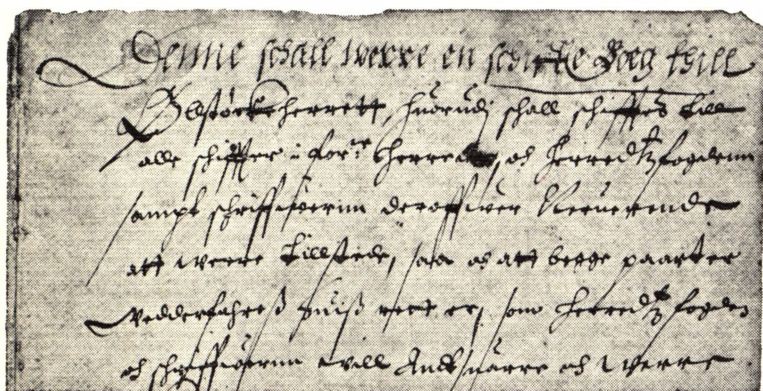 Denne schall werre en schifte Bog thill
Ølstøcke herrett, huorudj schall schifftes till
alle schiffter i for:ne Herrett, och Herredtz fogdernn
sampt schriffwerinn deroffwer Neruerende
att werre tillstede, saa och att begge paarter
wedderfahres huis rett er, som Herredtz fogden
och schriffwerinn will Andtsuarre och werre